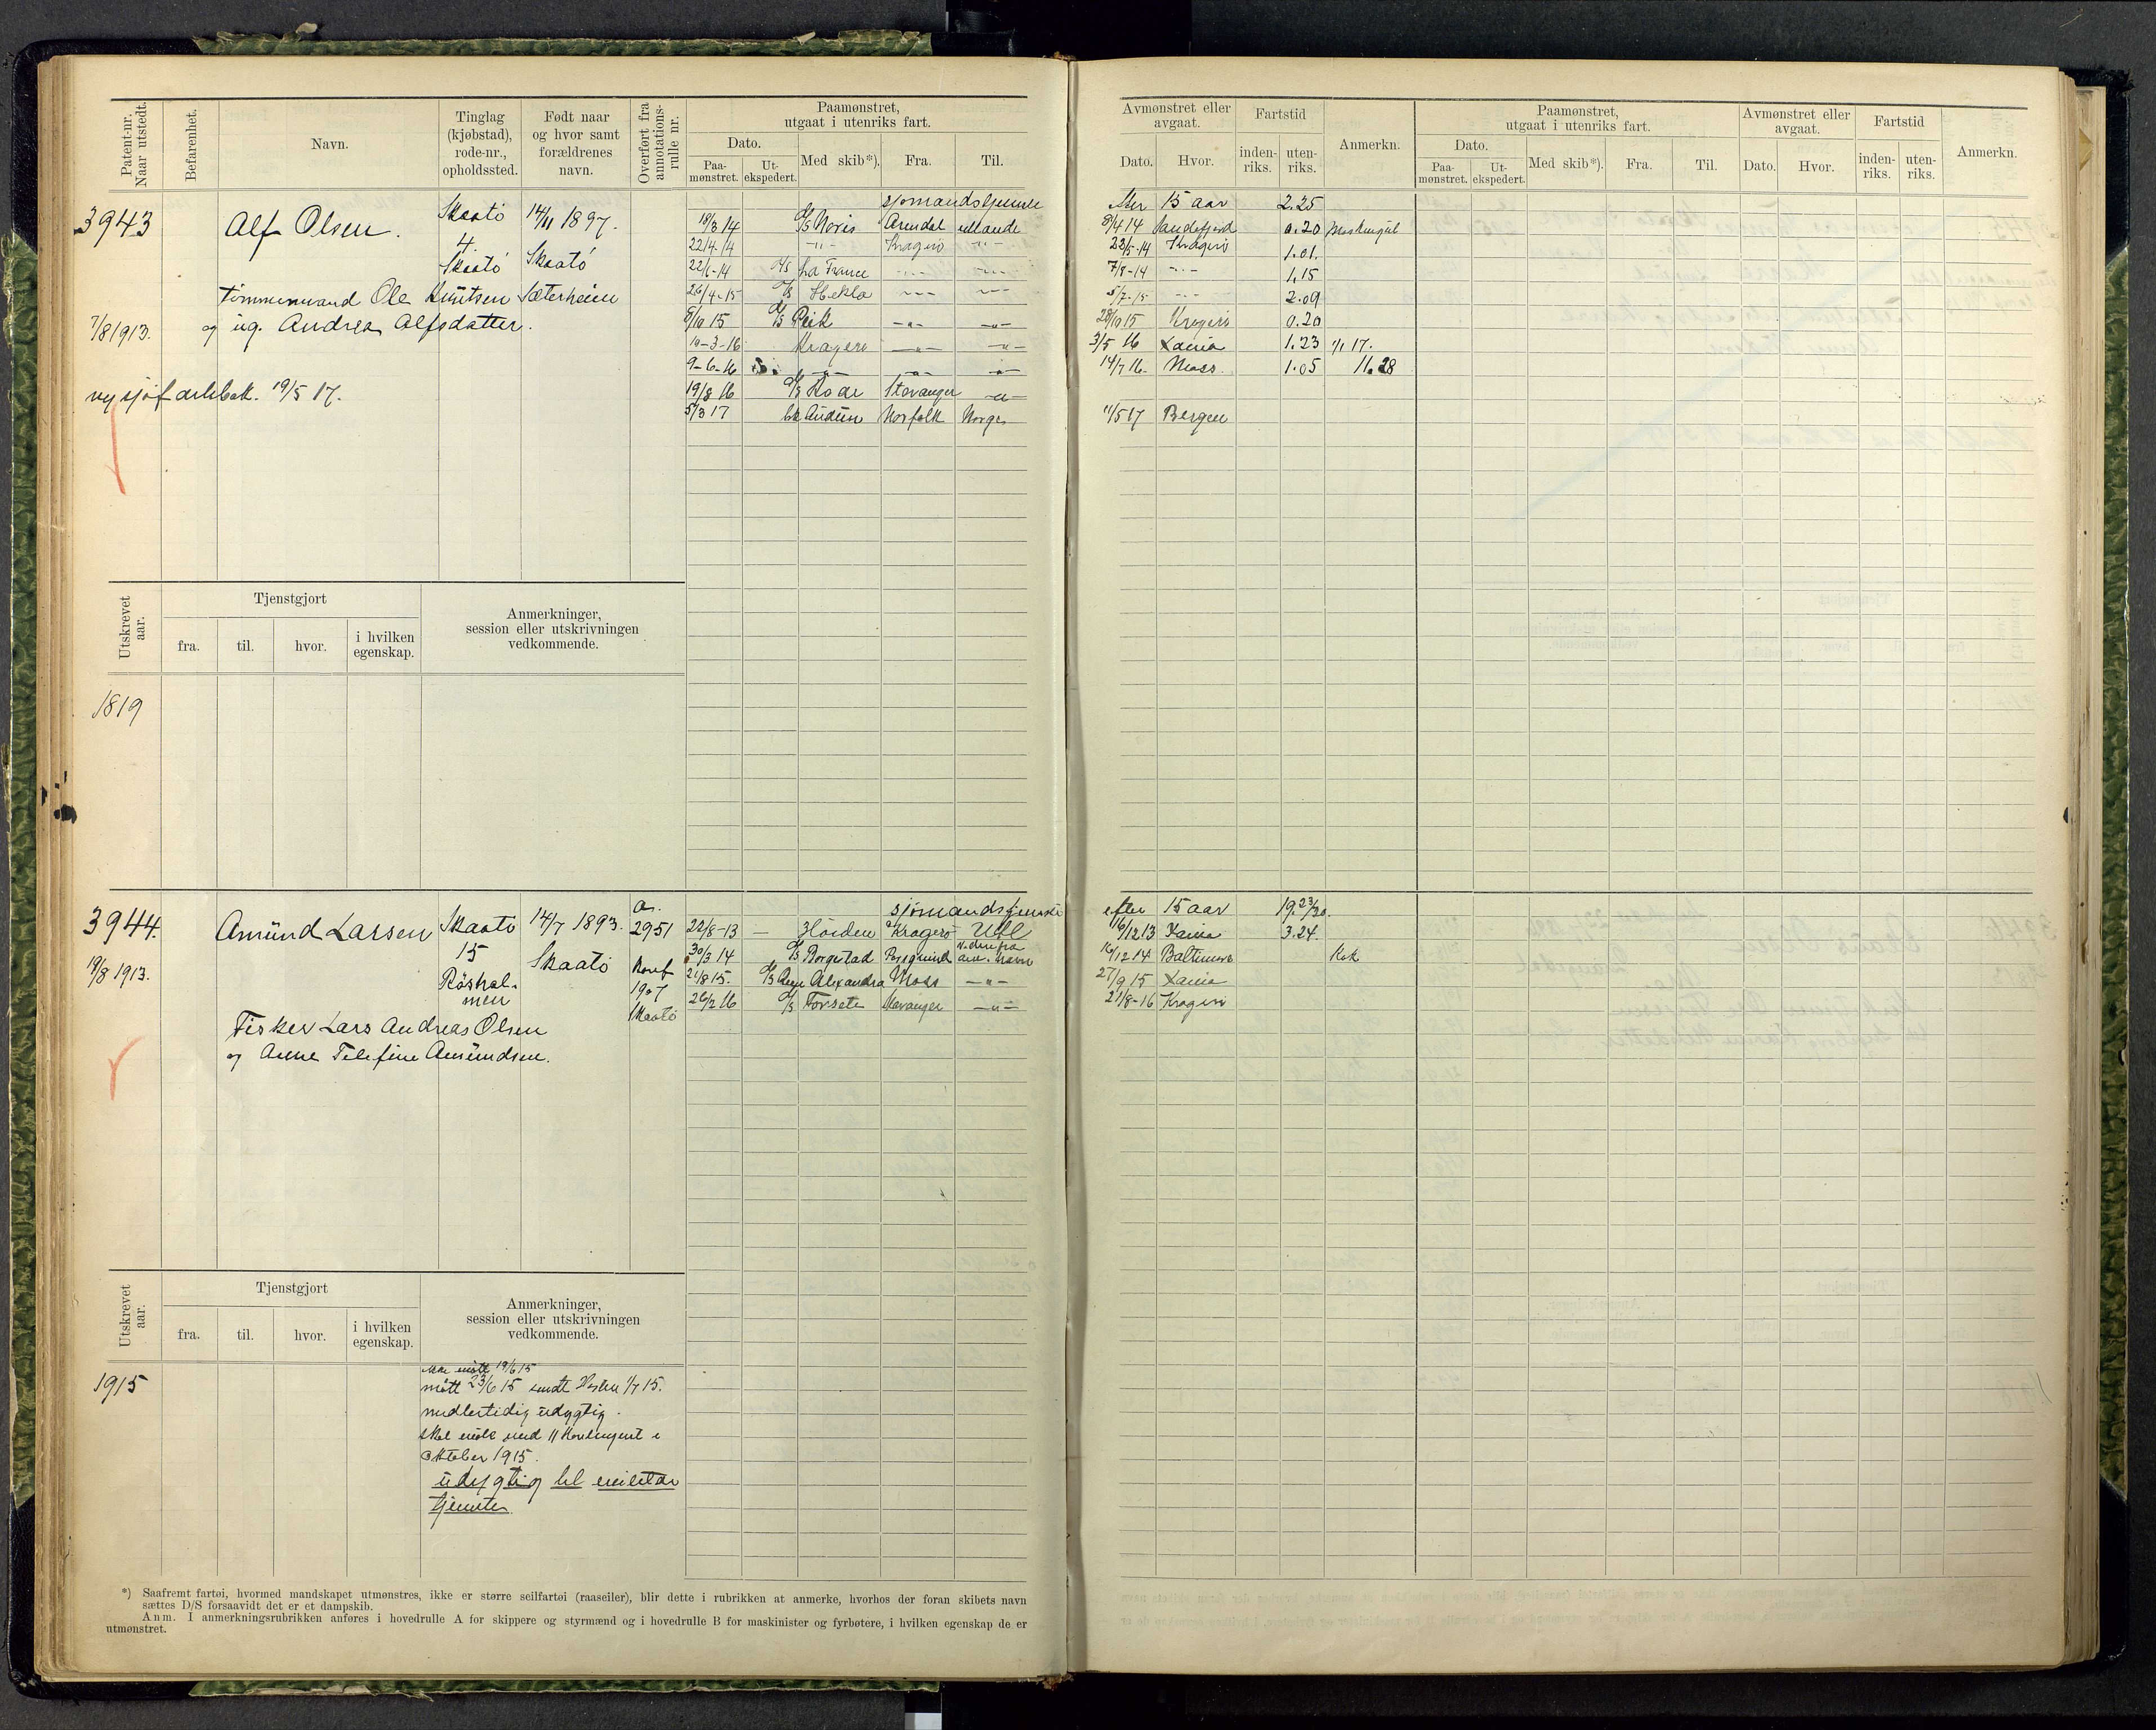 Patent-nr. Naar utstedt.
Befarenhet.
Navn.
Tinglag (kjøbstad), rode-nr., opholdssted.
Født naar og hvor samt forældrenes navn.
Overført fra annotations-rulle nr.
Paamønstret, utgaat i utenriks fart.
Dato.
Paa-mønstret.
Ut-ekspedert.
Med skib*).
Fra.
Til.
Avmønstret eller avgaat.
Dato.
Hvor.
Fartstid
inden-riks.
uten-riks.
Anmerkn.
Paamønstret, utgaat i utenriks fart.
Dato.
Paa-mønstret.
Ut-ekspedert.
Med skib*).
Fra.
Til.
Avmønstret eller avgaat.
Dato.
Hvor.
Fartstid
inden-riks.
uten-riks.
Anmerkn.
3943
Alf Olsen.
Skaatö
4.
Skaatö
14/11 1897.
Skaatö
Tømmermand Ole Knutsen Sæterheien
og ug. Andrea Alfsdatter.
7/8 1913.
ny sjøfartsbok. 19/5 17.
15 aar 2.25
18/3 14 D/S Noris Arendal utlandet 8/4 14 Sandefjord 0.20
22/4-14 -"- Kragerö -"- 22/5-14 Kragerö 1.01.
22/6-14 la France -"- -"- 7/8-14 -"- 1.15
26/4-15 D/S Hekla -"- -"- 5/7-15 -"- 2.09
8/10 15 D/S Peik -"- -"- 28/10 15 Kragerö 0.20
10-3-16 Kragerö -"- -"- 3/5 16 Xania 1.23 1/1 17.
9-6-16 -"- -"- -"- 14/7 16 Moss 1.05 11.28
19/8 16 D/S Roar Stavanger -"-
5/3 17 bk Audun Norfolk Norge 11/5 17 Bergen
Utskrevet aar.
Tjenstgjort
fra.
til.
hvor.
i hvilken egenskap.
Anmerkninger, session eller utskrivningen vedkommende.
1819
3944.
Amund Larsen
Skaatö
15
Röshol-
men
14/7 1893.
Skaatö
a.
2951
1907
Skaatö
19/8 1913.
Fisker Lars Andreas Olsen
og Anne Telefine Amundsen.
sjömandstjeneste efter 15 aar 19.23/30.
22/8-13 — Höiden Kragerö Utl 16/12 13 Xania 3.24.
30/3 14 D/S Borgestad Porsgrund 16/12 14 Baltimore Kok
21/8 15. Alexandra Moss -"- 27/9 15 Xania
26/2 16 D/S Forsete Stavanger -"- 21/8-16 Kragerö
Utskrevet aar.
Tjenstgjort
fra.
til.
hvor.
i hvilken egenskap.
Anmerkninger, session eller utskrivningen vedkommende.
1915
19/6 15
mött 23/6 15 sendt 1/7 15.
midlertidig udygtig.
skal möte med II Kontingent i
Oktober 1915.
udygtig til militær
tjeneste
*) Saafremt fartøi, hvormed mandskapet utmønstres, ikke er større seilfartøi (raaseiler), blir dette i rubrikken at anmerke, hvorhos der foran skibets navn
sættes D/S forsaavidt det er et dampskib.
Anm. I anmerkningsrubrikken anføres i hovedrulle A for skippere og styrmænd og i hovedrulle B for maskinister og fyrbøtere, i hvilken egenskap de er
utmønstret.